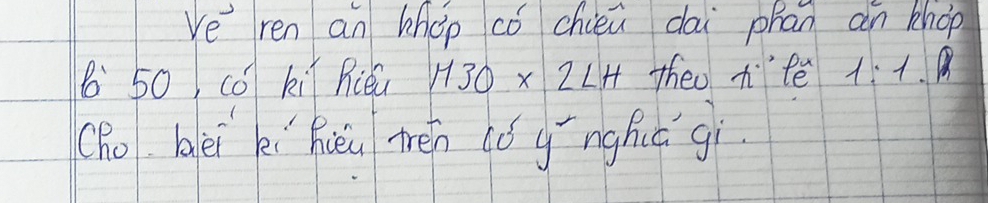 Vẽ ren ăn khớp có chiều dài phần ăn khớp
là 50, có kí hiệu M30 x 2LH theo tỉ lệ 1:1.
Cho biết kí hiệu trên có ý nghĩa gì.